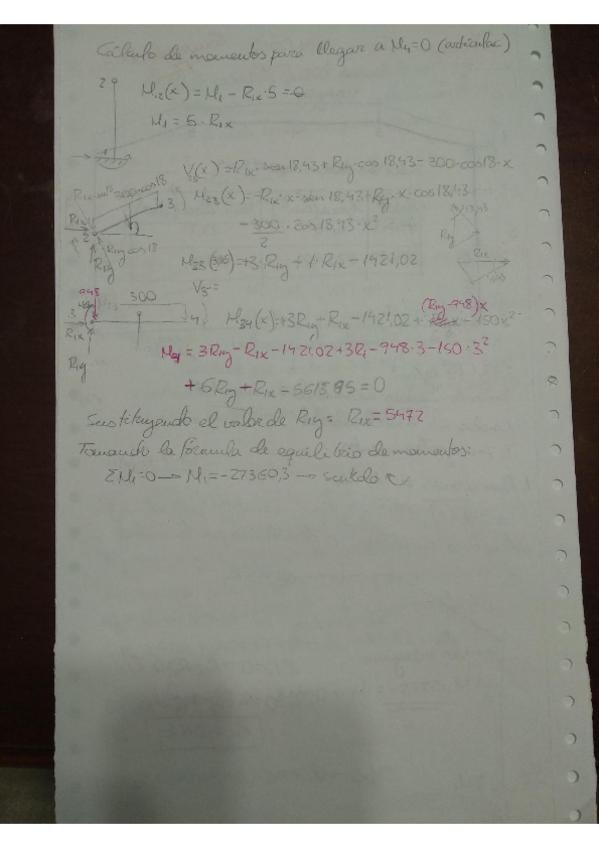 Cálculo de momentos para llegar a M4=0 (articulac)
2
M12(x) = M1 - R1x·5 = 0
M1 = 5·R1x
1
V23(x) = R1x·sen18,43+R1y·cos18,43-300·cos18·x
M23(x) = -R1x·x·sen18,43+R1y·x·cos18,43
3
- 300/2 · cos18,43·x²
R1y cos18
R1y
R1x
M23(3,16) = +3·R1y + 1·R1x - 1421,02
V3 =
948
300
(R1y-948)x
3
4
M34(x) = +3R1y - R1x - 1421,02 + - 150x²
R1x
R1y
M4 = 3R1y - R1x - 1421,02 + 3R1 - 948·3 - 150·3²
+ 6R1y + R1x - 5615,95 = 0
Sustituyendo el valor de R1y = R1x = 5472
Tomando la fórmula de equilibrio de momentos:
ΣM1=0 → M1 = -27360,3 → sentido